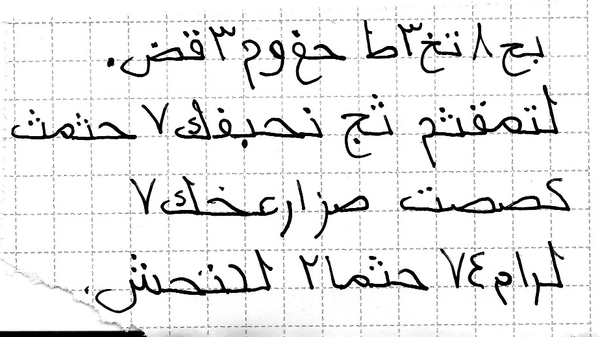 بج٨تخ٣ط حغوم٣قض.
لتمقثم ثج نحبفك٧ حثمث
كصصت صزارعخك٧
لرام٧٤ حثما٢ لحنحش.